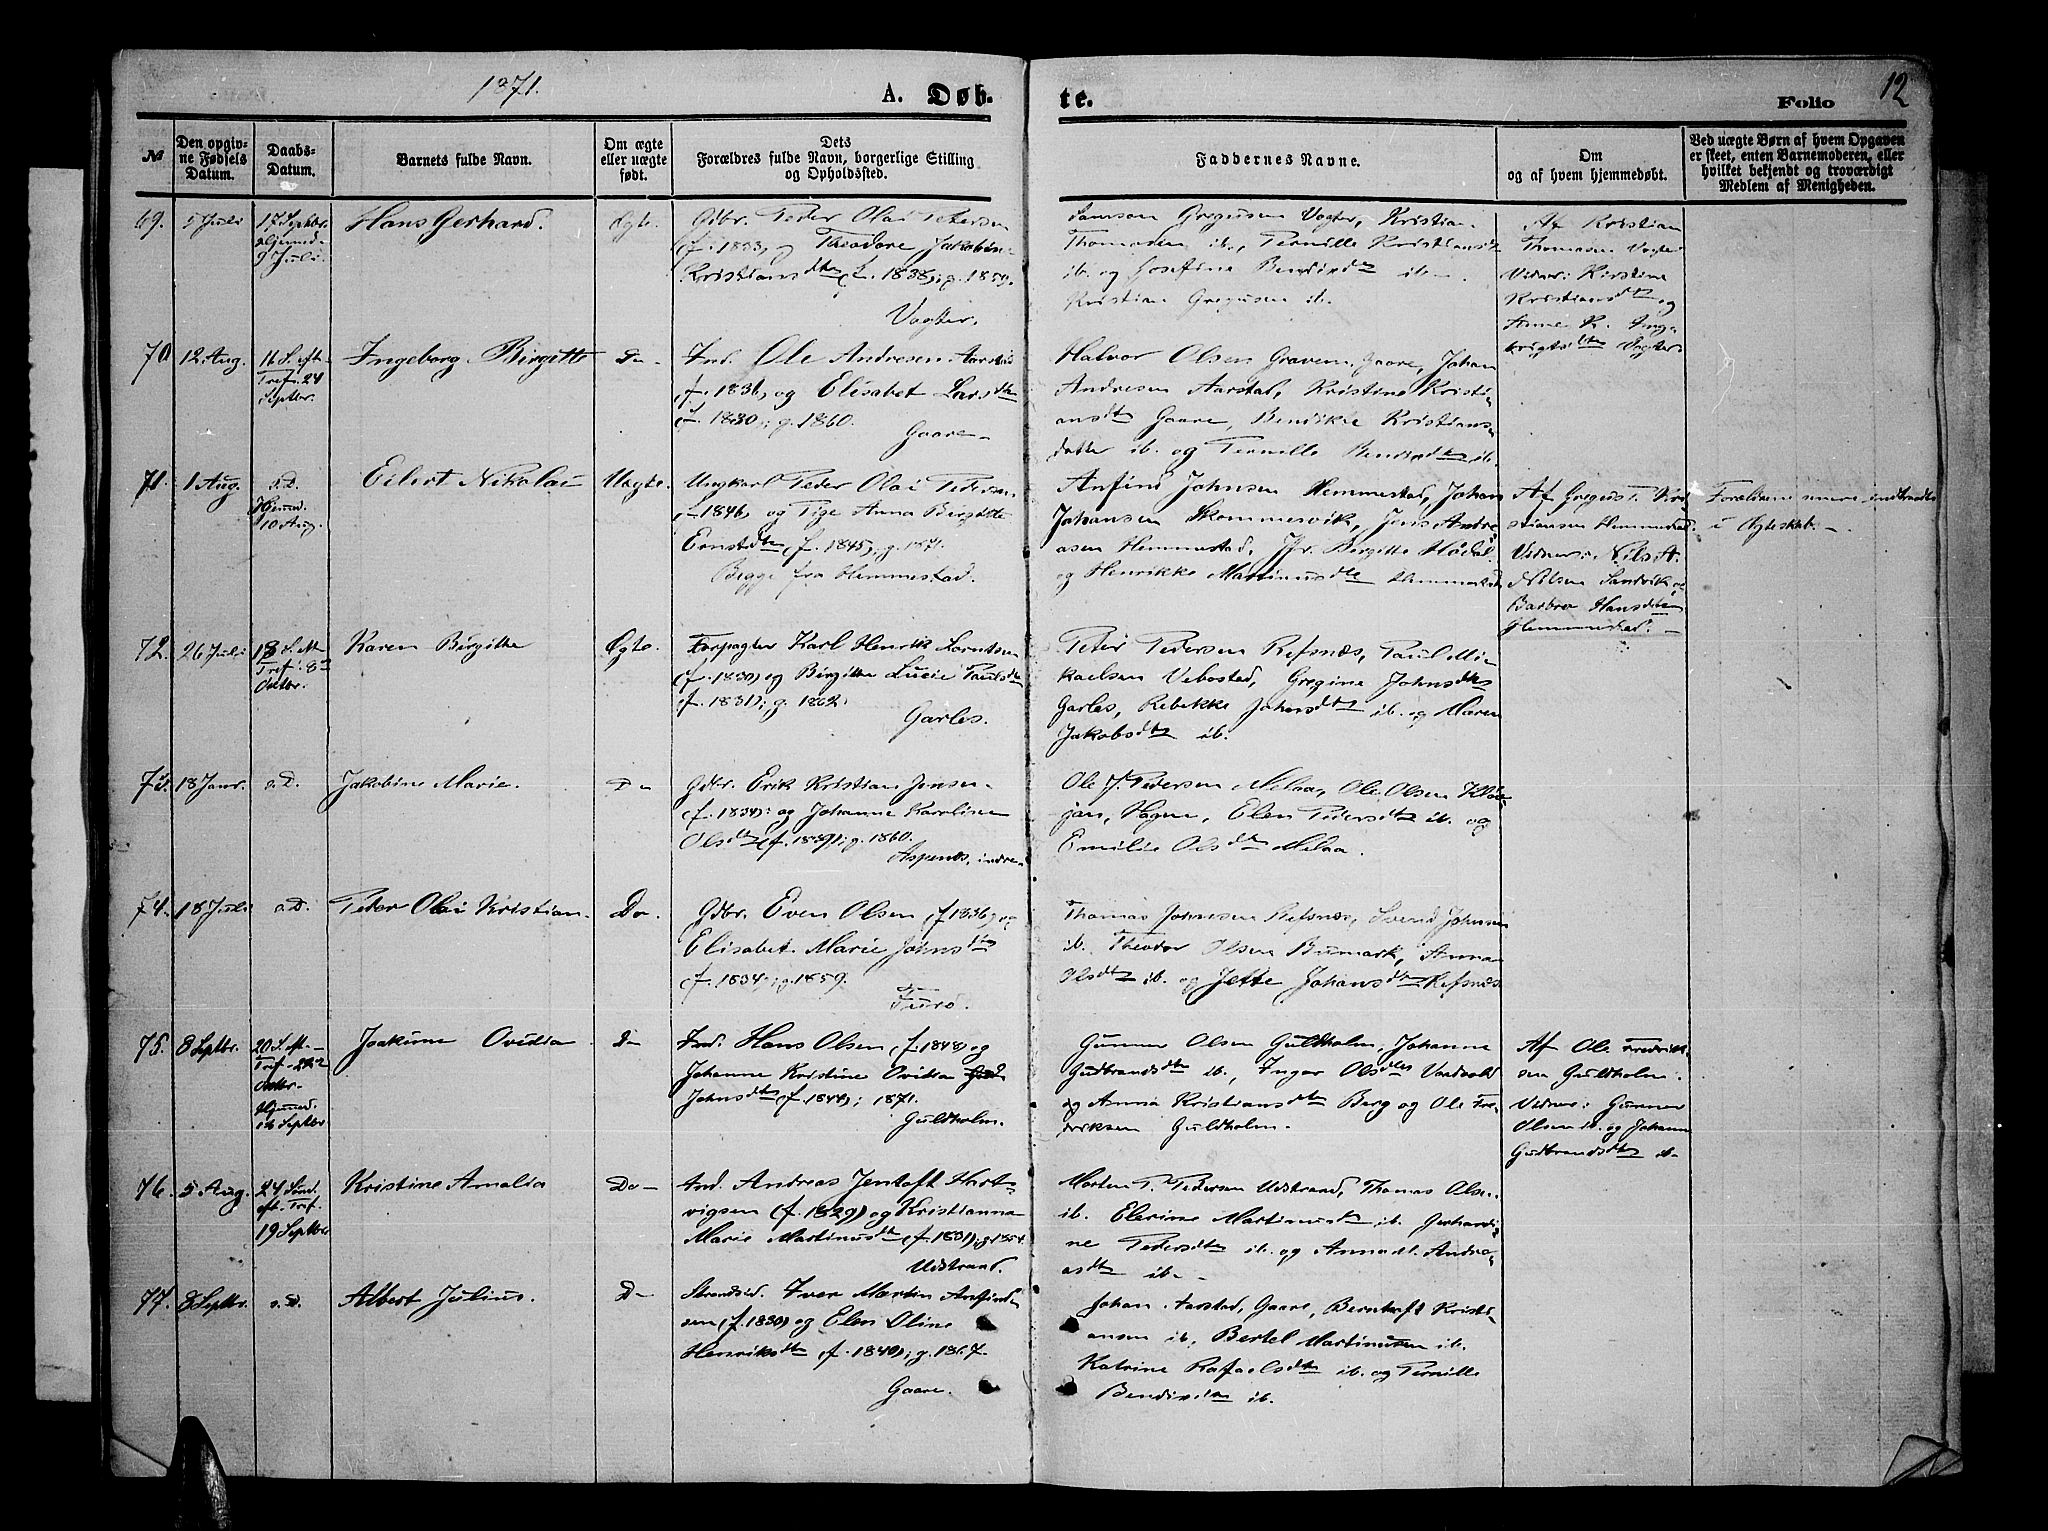 1871.
A. Døb-
te.
Folio 12
№
Den opgiv-
ne Fødsels
Datum.
Daabs-
Datum.
Barnets fulde Navn.
Om ægte
eller uægte
født.
Dets
Forældres fulde Navn, borgerlige Stilling
og Opholdssted.
Faddernes Navne.
Om
og af hvem hjemmedøbt.
Ved uægte Børn af hvem Opgaven
er skeet, enten Barnemoderen, eller
hvilket bekjendt og troværdigt
Medlem af Menigheden.
69.
5 Juli
17 Septbr.
Hjemmed.
9 Juli.
Hans Gerhard.
Ægte.
Gdbr. Peder Olai Petersen
(f. 1833) og Theodore Jakobine
Kristiansdtr (f. 1838); g. 1859.
Vogter.
Samson Gregusen Vogter, Kristian
Thomasen ib., Pernille Kristiansdtr
ib. og Josefine Bendixdtr ib.
Kristian Gregusen ib.
Af Kristian
Thomasen Vogter
Vidner: Kirstine
Kristiansdtr og
Anne K. Inge-
brigtsdtr Vogter
70
12 Aug.
16 S. eft.
Tref. 24
Septbr.
Ingeborg Birgitte
Do
Ind. Ole Andresen Aarstad
(f. 1836) og Elisabet Larsdtr
(f. 1830); g. 1860.
Gaare
Halvor Olsen Gravem, Gaare, Johan
Andresen Aarstad, Kristine Kristi-
ansdtr Gaare, Bendikte Kristians-
datter ib. og Pernille Bendixdtr ib.
71.
1 Aug.
s. D.
Hjemd.
10 Aug.
Eilert Nikolai
Uægte.
Ungkarl Peder Olai Pedersen
(f. 1846) og Pige Anna Birgitte
Ernstdtr (f. 1845); g. 1871.
Begge fra Hemmestad.
Anfind Johnsen Hemmestad, Johan
Johansen Skommesvik, Jens Andre-
asen Hemmestad, Jfr. Birgitte Hødal
og Henrikke Martinusdtr Hemmestad
Af Gregus T. Kri-
stiansen Hemmestad
Vidner: Nils A.
Nilsen Sandvik og
Barbro Hansdtr
Hemmestad.
Forældrene
i Ægteskab.
72.
26 Juli
18 S. eft
Tref. 8de
Octbr.
Karen Birgitte
Ægte.
Forpagter Karl Henrik Lorntsen
(f. 1830) og Birgitte Lucie Paulsdtr
(f. 1831); g. 1862.
Garles.
Peter Pedersen Refsnæs, Paul Mi-
kaelsen Vebostad, Gregine Johnsdtr
Garles, Rebekke Johnsdtr ib. og Maren
Jakobsdtr ib.
73.
18 Janr.
s. D.
Jakobine Marie.
Do
Gdbr. Erik Kristian Jensen
(f. 1834) og Johanne Karoline
Olsdtr (f. 1839); g. 1860.
Aspenæs, indre
Ole J. Pedersen Melaa, Ole Olsen Klø-
jan, Hagen, Elen Pedersdtr ib. og
Emilie Olsdtr Melaa.
74.
18 Juli
s. D.
Peder Olai Kristian.
Do.
Gdbr. Even Olsen (f. 1836) og
Elisabet Marie Johnsdtr
(f. 1834); g. 1859.
Turø.
Thomas Johnsen Refsnæs, Svend Johnsen
ib. Theodor Olsen Bumark, Anna
Olsdtr ib. og Jette Johansdtr Refsnæs
75.
8 Septbr.
20 S. eft.
Tref. 22
Octbr.
Hjemmed.
16 Septbr
Joakime Ovidia
Do
Ind. Hans Olsen (f. 1848) og
Johanne Kristine Ovidia
Johnsdtr (f. 1844); 1871.
Guldholm.
Gunner Olsen Guldholm, Johanne
Gudbrandsdtr ib., Inger Olsdtr
og Anna Kristiansdtr Berg og Ole Fre-
driksen Guldholm.
Af Ole Fredrik-
sen Guldholm.
Vidner: Gunner
Olsen ib. og Johanne
Gudbrandsdtr ib
76.
5 Aug.
24 Sønd.
eft. Tref.
19 Septbr
Kristine Amalia
Do
Ind. Andreas Jentoft Hart-
vigsen (f. 1829) og Kristianna
Marie Martinusdtr (f. 1831); g. 1854.
Udstrand.
Morten P. Pedersen Udstrand, Thomas Olsen
ib. Elerine Martinusdtr ib. Gerhardi-
ne Pedersdtr ib. og Anna M. Andre-
asdtr ib.
77.
8 Septbr.
s. D.
Albert Julius.
Do
Strandsid. Iver Martin Anfind-
sen (f. 1830) og Elen Oline
Henriksdtr (f. 1840); g. 1867.
Gaare.
Johan Aarstad, Gaare, Berntoft Kristi-
ansen ib., Bertel Martinusen ib.
Katrine Rafaelsdtr ib. og Pernille
Bendixdtr ib.